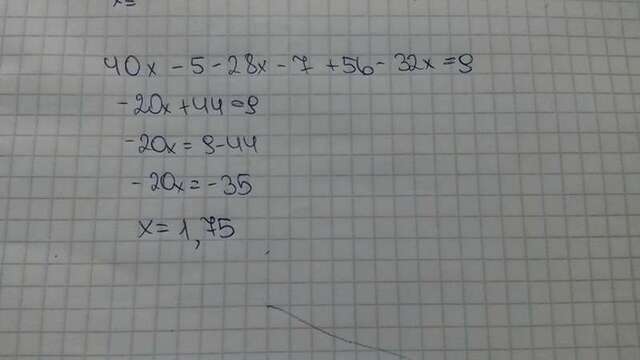 x=
40x - 5 - 28x - 7 + 56 - 32x = 9
-20x + 44 = 9
-20x = 9 - 44
-20x = -35
x = 1,75